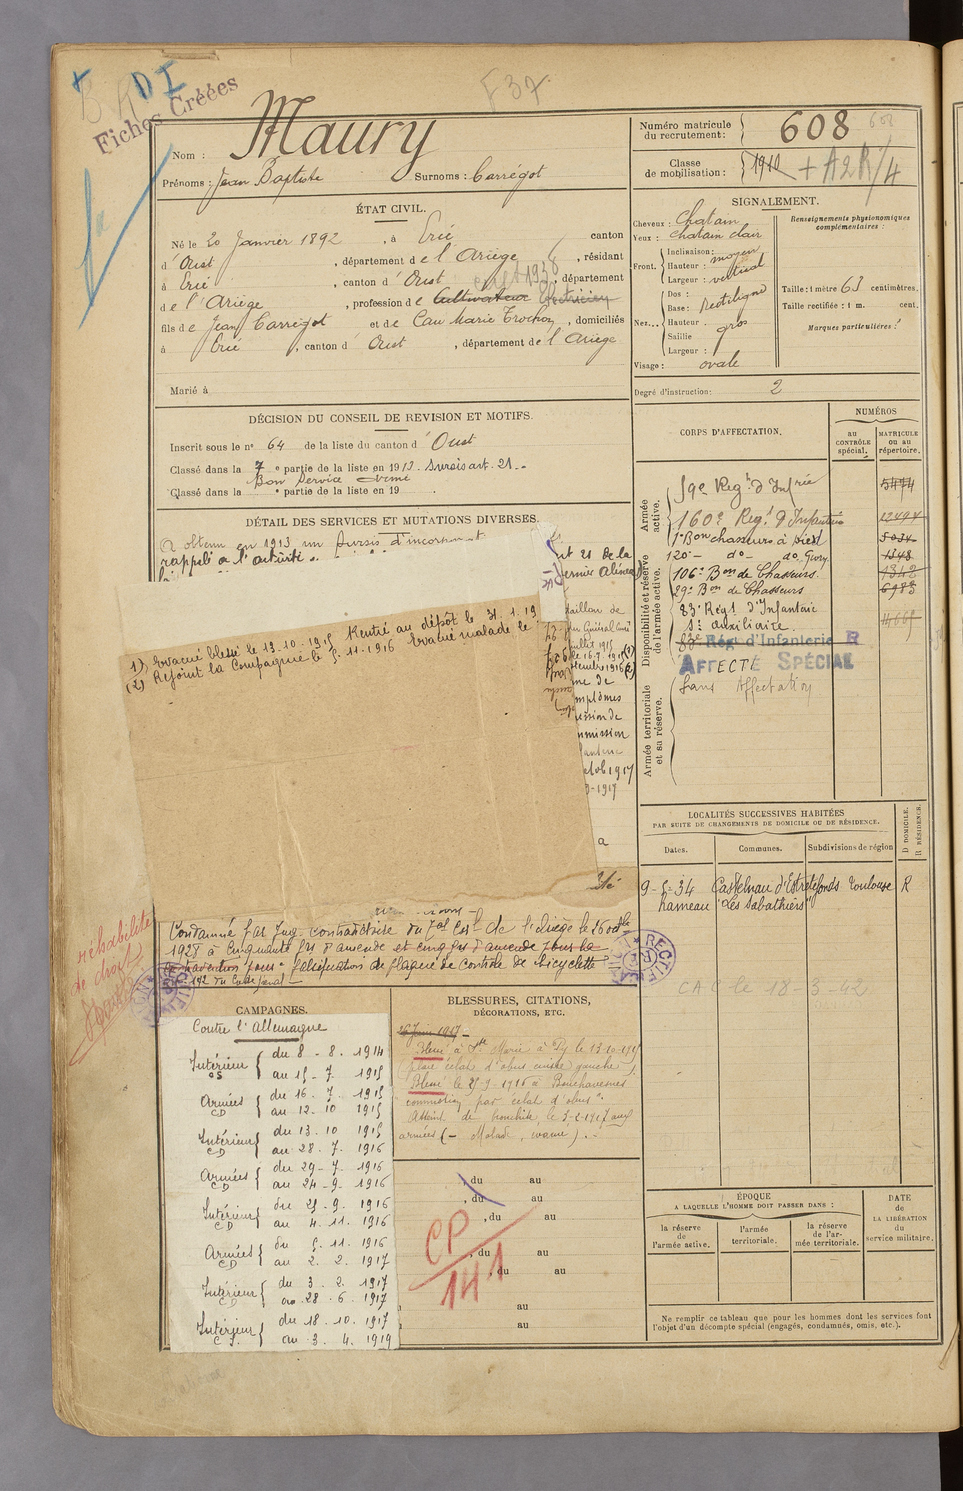 F 37.
DI
Fiches Créées
Nom : Maury
Prénoms : Jean Baptiste Surnoms : Carrégot
Numéro matricule du recrutement : 608
Classe de mobilisation : 1910 + A2R/4
ÉTAT CIVIL.
Né le 20 Janvier 1892, à Ercé canton
d'Oust, département de l'Ariège, résidant
à Ercé, canton d'Oust, département
de l'Ariège, profession de Cultivateur Électricien
fils de Jean Carrégot et de Cau Marie Trochou, domiciliés
à Ercé, canton d'Oust, département de l'Ariège
Marié à
SIGNALEMENT.
Cheveux : Chatain
Yeux : chatain clair
Front. Inclinaison : moyen
Hauteur :
Largeur : vertical
Nez... Dos : Rectiligne
Base :
Hauteur : gros
Saillie
Largeur :
Visage : ovale
Renseignements physionomiques complémentaires :
Taille : 1 mètre 63 centimètres.
Taille rectifiée : 1 m. cent.
Marques particulières :
Degré d'instruction : 2
DÉCISION DU CONSEIL DE REVISION ET MOTIFS.
Inscrit sous le n° 64 de la liste du canton d'Oust
Classé dans la 7e partie de la liste en 1913. Sursis art. 21.
Bon Service Armé
Classé dans la e partie de la liste en 19 .
DÉTAIL DES SERVICES ET MUTATIONS DIVERSES.
A obtenu en 1913 un sursis d'incorporat
art 21 de la
rappelé à l'activité
dernier alinéa
1), Evacué blessé le 13.10.1915 Rentré au dépôt le 31.1.19
(2) Rejoint la Compagnie le 5.11.1916 Evacué malade le
taillon de
juillet 1915
le 16-7-1915 (1)
1916 (2)
me de
mptômes
ission de
mmission
fanterie
octob 1917
-1917
Condamné par Jug. contradictoire du Bal Corel de l'Ariège le 16 oct
1928 à cinquante frs d'amende et cinq frs d'amende pour la
falsification de plaque de controle de bicyclette
réhabilité
de droit
RECTIFIÉ
CORPS D'AFFECTATION.
NUMÉROS
au CONTRÔLE spécial.
MATRICULE ou au répertoire.
Armée active.
Disponibilité et réserve de l'armée active.
Armée territoriale et sa réserve.
59e Régt d'Infrie 5474
160e Régt d'Infanterie 12494
1er Bon chasseurs à pied 5034
120- do- do, Givry. 1348
106e Bon de Chasseurs. 1342
29e Bon de Chasseurs 6983
83e Régt d'Infanterie
S. auxiliaire. 4665
83e Rég. d'Infanterie R
AFFECTÉ SPÉCIAL
Sans Affectation
LOCALITÉS SUCCESSIVES HABITÉES
PAR SUITE DE CHANGEMENTS DE DOMICILE OU DE RÉSIDENCE.
Dates. Communes. Subdivisions de région
D DOMICILE. R RÉSIDENCE.
9-5-34 Castelnau d'Estrétefonds Toulouse R
hameau "Les Sabathiers"
RECTIFIÉ
CAC le 18-3-42
CAMPAGNES.
Contre l'Allemagne
Intérieur CS { du 8 - 8. 1914
au 15 - 7. 1915
Armées CD { du 16. 7. 1915
au 12. 10 1915
Intérieur CD { du 13. 10 1915
au 28. 7. 1916
Armées CD { du 29-7. 1916
au 24-9. 1916
Intérieur CD { du 25-9. 1916
au 4. 11. 1916
Armées CD { du 5. 11. 1916
au 2. 2. 1917
Intérieur CD { du 3. 2. 1917
au 28. 6. 1917
Intérieur CS { du 18. 10. 1917
au 3. 4. 1919
BLESSURES, CITATIONS,
DÉCORATIONS, ETC.
26 Juin 1917
Blessé à Ste Marie à Py le 13-10-1915
(plaie éclat d'obus cuisse gauche)
Blessé le 25-9-1916 à Bouchavesnes
commotion par éclat d'obus".
Atteint de bronchite, le 3-2-1917 aux
armées (- Malade, évacué).
, du au
, du au
, du au
, du au
, du au
au
au
CP
141
ÉPOQUE
A LAQUELLE L'HOMME DOIT PASSER DANS :
la réserve de l'armée active.
l'armée territoriale.
la réserve de l'armée territoriale.
DATE
de
LA LIBÉRATION
du
service militaire.
Ne remplir ce tableau que pour les hommes dont les services font
l'objet d'un décompte spécial (engagés, condamnés, omis, etc.).